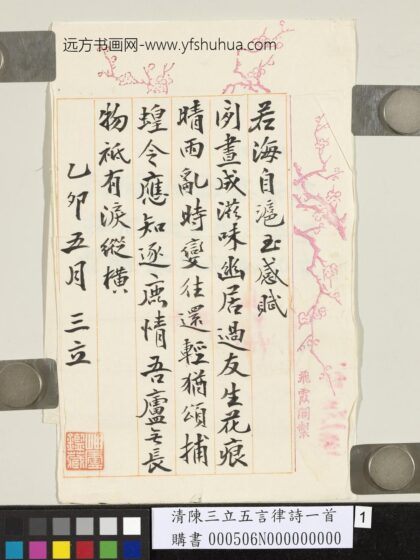 远方书画网-www.yfshuhua.com
若海自滬至感賦
閉晝成滋味幽居過友生花痕
晴雨亂時變往還輕猶頌捕
蝗令應知逐鹿情吾廬无長
物祇有淚縱橫
乙卯五月 三立
飛霞閣製
清陳三立五言律詩一首
購書 000506N000000000
1